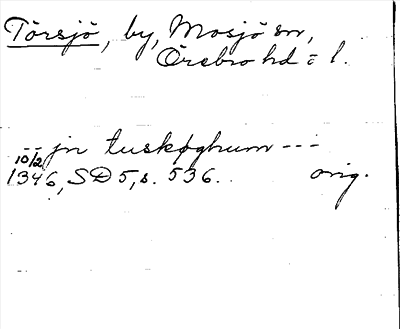 Törsjö, by, Mosjö sn,
Örebro hd = l.
-- jn tuskøghum ---
10/2 1346, SD 5, s. 536. orig.